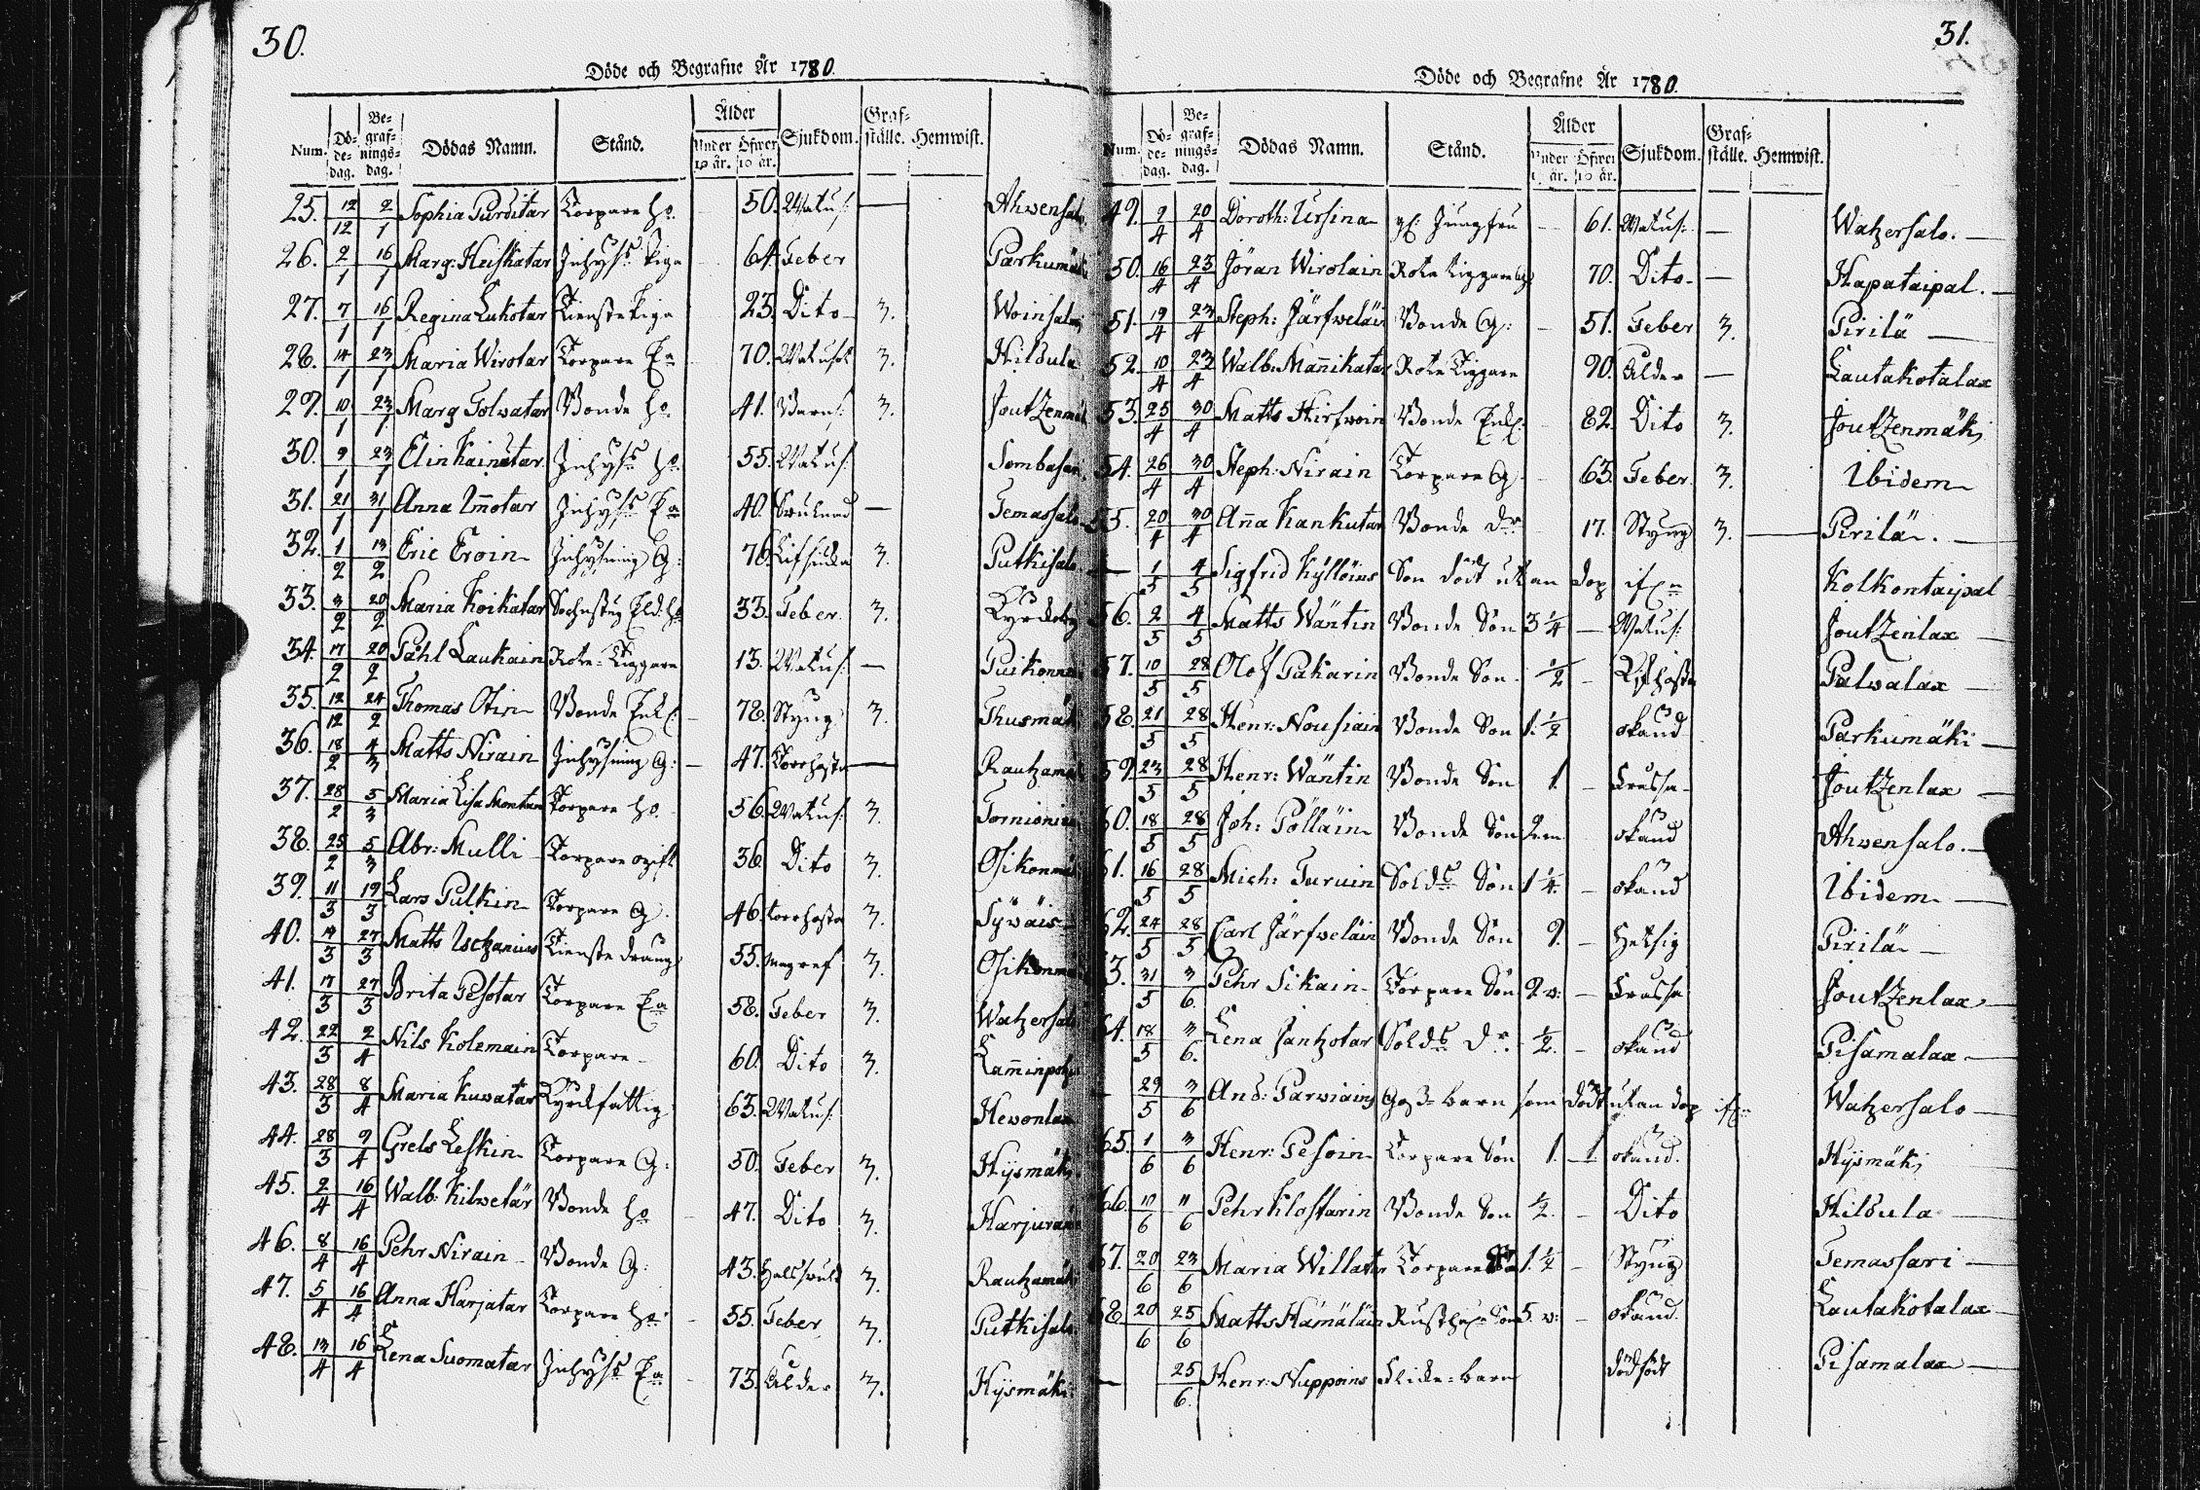 30.
Döde och Begrafne År 1780.
Num. Döde-dag. Begrafnings-dag. Dödas Namn. Stånd. Ålder Under 10 år. Öfwer 10 år. Sjukdom. Grafställe. Hemwist.
25. 12/12 2/1 Sophia Purditar Torpare ho. 50. Watus: — Ahwensalo
26. 2/1 16/1 Marg: Heiskatar Inhyses Piga 64. Feber Parkumäki
27. 7/1 16/1 Regina Lukotar Tienste Piga 23. Dito 3. Woinsalmi
28. 14/1 23/1 Maria Wirotar Torpare Ea 70. Watusot 3. Hildula
29. 10/1 23/1 Marg Tolwatar Bonde ho. 41. Barns: 3. Joutzenmäki
30. 9/1 23/1 Elin Kainutar Inhyses ho 55. Watus: Sombasari
31. 21/1 31/1 Anna Immotar Inhyses Ea 40. —
32. 1/2 13/2 Eric Eroin Inhysning G: 76. 3. Putkisalo
33. 3/2 20/2 Maria Koikatar 33. Feber. 3. Kyrckoby
34. 17/2 20/2 Påhl Laukain Rote-Tiggare 13. Watus: —
35. 12/12 24/2 Thomas Otin Bonde Enkl: 78. Styng 3. Thusmäki
36. 18/2 4/3 Matts Nirain Inhysning G: 47. Torrhosta — Rautzamäki
37. 28/2 5/3 Maria Lisa Torpare ho. 56. Watus: 3. Tornioniemi
38. 25/2 5/3 Abr: Mulli Torpare ogift 36 Dito 3. Osikonmäki
39. 11/3 19/3 Lars Pulkin Torpare G. 46. torrhosta 3. Sywäis
40. 14/3 27/3 Matts Uschanius Tienste dräng 55. magref 3. Osikonmäki
41. 17/3 27/3 Brita Pesotar Torpare Ea 58. Feber 3. Watzersalo
42. 22/3 2/4 Nils Kolemain Torpare 60. Dito 3. Lamminpohja
43. 28/3 8/4 Maria Kuwatar Kyrckfattig 63. Watus: Hewonlax
44. 28/3 9/4 Grels Leskin Torpare G: 50. Feber 3. Hysmäki
45. 2/4 16/4 Walb: Kilwetär Bonde ho 47. Dito 3. Harjuranda
46. 8/4 16/4 Pehr Nirain Bonde G: 43. Halsswulst 3. Rautzamäki
47. 5/4 16/4 Anna Harjatar Torpare ho 55. Feber 3. Putkisalo
48. 13/4 16/4 Lena Suomatar Inhyses Ea 73. Ålder 3. Hysmäki
31.
Döde och Begrafne År 1780.
Num. Döde-dag. Begrafnings-dag. Dödas Namn. Stånd. Ålder Under 10 år. Öfwer 10 år. Sjukdom. Grafställe. Hemwist.
49. 9/4 20/4 Doroth: Ursina gl: Jungfru — 61. Watus: — Watzersalo. —
50. 16/4 23/4 Jöran Wirolain Rote Tiggare G 70. Dito — Hapataipal. —
51. 19/4 23/4 Steph: Järfweläin Bonde G: — 51. Feber 3. Pirilä —
52. 10/4 23/4 Walb: Mannikatar Rote Tiggare 90. Ålder — Lautakotalax
53. 25/4 30/4 Matts Hirfwoin Bonde Enkl: 82. Dito 3. Joutzenmäki
54. 26/4 30/4 Steph: Nirain Torpare G 63. Feber. 3. Ibidem
55. 20/4 30/4 Anna Kankutar Bonde dr 17. Styng 3. — Pirilä. —
— 1/5 4/5 Sigfrid Kyllöins Son död utan dop Kolkontaipal
56. 2/5 4/5 Matts Wäntin Bonde Son 3 1/4 — Watus: Joutzenlax —
57. 10/5 28/5 Olof Pakarin Bonde Son 1/2 — Kikhosta Palwalax —
58. 21/5 28/5 Henr: Nousiain Bonde Son 1. 1/2 okand Parkumäki —
59. 23/5 28/5 Henr: Wäntin Bonde Son 1. — Frussa Joutzenlax —
60. 18/5 28/5 Joh: Pölläin Bonde Son 9. m okand Ahwensalo. —
61. 16/5 28/5 Mich: Turuin Solds Son 1 1/4. — okand Ibidem —
62. 24/5 28/5 Carl Järfweläin Bonde Son 9. — Hetsig Pirilä —
63. 31/5 3/6. Pehr Sikain Torpare Son 2 v: — Frussa Joutzenlax —
64. 18/5 3/6. Lena Jantzotar Solds Dr. 1/2. — okand Pisamalax —
— 29/5 3/6 And: Parwiains Goße-barn som dödt utan dop Watzersalo —
65. 1/6 3/6 Henr: Pesoin Torpare Son 1. — 1 okand. Hysmäki
66. 10/6 11/6 Pehr Klostarin Bonde Son 1/2. — Dito Hildula —
67. 20/6 23/6 Maria Willatar Torpare 1. 1/2 — Styng Temassari —
68. 20/6 25/6 Matts Hämäläin Rusth: Son 5. v: — okand. Lautakotalax
— 25/6. Henr: Nuppoins Flicke-barn dödfödt Pisamalax —